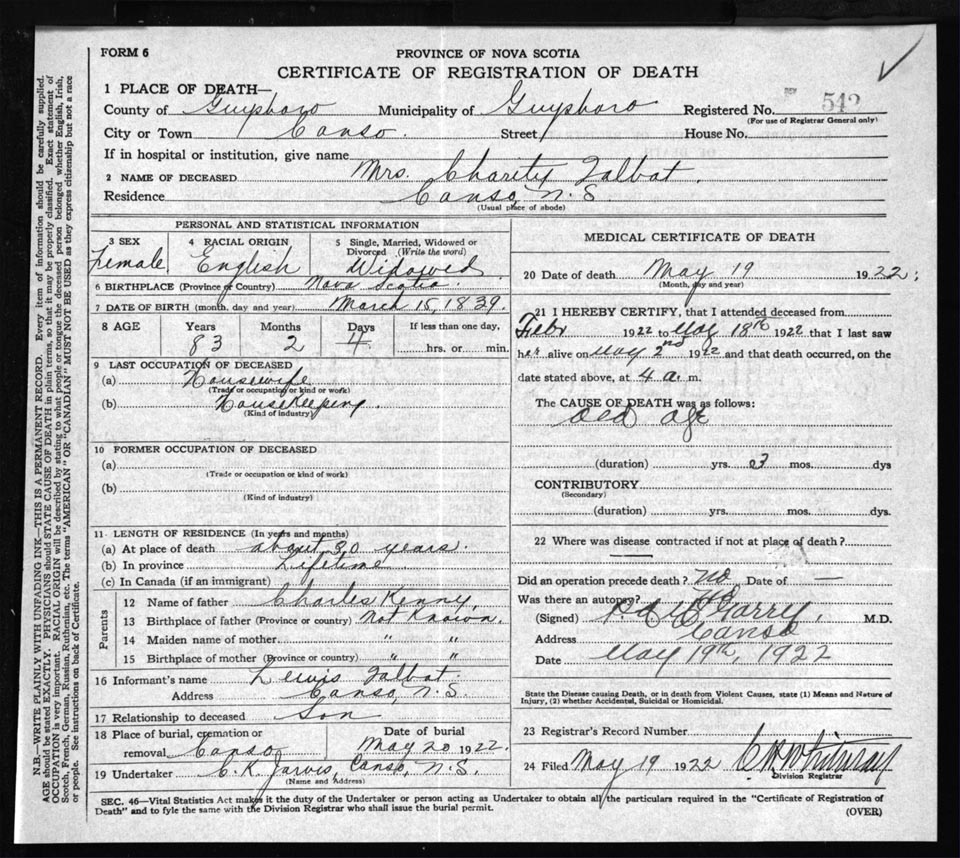 FORM 6
PROVINCE OF NOVA SCOTIA
CERTIFICATE OF REGISTRATION OF DEATH
1 PLACE OF DEATH—
County of Guysboro Municipality of Guysboro Registered No. 542
(For use of Registrar General only)
City or Town Canso Street House No.
If in hospital or institution, give name
2 NAME OF DECEASED Mrs. Charity Talbot.
Residence Canso, N.S.
(Usual place of abode)
PERSONAL AND STATISTICAL INFORMATION
3 SEX
Female
4 RACIAL ORIGIN
English
5 Single, Married, Widowed or
Divorced (Write the word)
Widowed
6 BIRTHPLACE (Province or Country) Nova Scotia.
7 DATE OF BIRTH (month, day and year) March 15, 1839.
8 AGE Years Months Days If less than one day,
83 2 4 hrs. or min.
9 LAST OCCUPATION OF DECEASED
(a) Housewife
(Trade or occupation or kind or work)
(b) Housekeeping.
(Kind of industry)
10 FORMER OCCUPATION OF DECEASED
(a)
(Trade or occupation or kind of work)
(b)
(Kind of industry)
11 LENGTH OF RESIDENCE (In years and months)
(a) At place of death about 30 years.
(b) In province Lifetime
(c) In Canada (if an immigrant)
Parents
12 Name of father Charles Kenny,
13 Birthplace of father (Province or country) Not Known.
14 Maiden name of mother " "
15 Birthplace of mother (Province or country) " "
16 Informant's name Lewis Talbot.
Address Canso, N.S.
17 Relationship to deceased Son
18 Place of burial, cremation or
removal Canso
Date of burial
May 20 1922.
19 Undertaker C. K. Jarvis, Canso, N.S.
(Name and Address)
MEDICAL CERTIFICATE OF DEATH
20 Date of death May 19 1922;
(Month, day and year)
21 I HEREBY CERTIFY, that I attended deceased from
Febr 1922 to May 18th 1922 that I last saw
her alive on May 2nd 1922 and that death occurred, on the
date stated above, at 4 a. m.
The CAUSE OF DEATH was as follows:
Old Age
(duration) yrs. 3 mos. dys
CONTRIBUTORY
(Secondary)
(duration) yrs. mos. dys.
22 Where was disease contracted if not at place of death?
Did an operation precede death? No Date of —
Was there an autopsy? No
(Signed) M.D.
Address Canso
Date May 19th, 1922
State the Disease causing Death, or in death from Violent Causes, state (1) Means and Nature of
Injury, (2) whether Accidental, Suicidal or Homicidal.
23 Registrar's Record Number
24 Filed May 19 1922
Division Registrar
SEC. 46—Vital Statistics Act makes it the duty of the Undertaker or person acting as Undertaker to obtain all the particulars required in the "Certificate of Registration of
Death" and to fyle the same with the Division Registrar who shall issue the burial permit.
(OVER)
N.B.—WRITE PLAINLY WITH UNFADING INK—THIS IS A PERMANENT RECORD. Every item of information should be carefully supplied.
AGE should be stated EXACTLY. PHYSICIANS should STATE CAUSE OF DEATH in plain terms, so that it may be properly classified. Exact statement of
OCCUPATION is very important. RACIAL ORIGIN will be described by stating to what people or tongue the deceased person belonged whether English, Irish,
Scotch, French, German, Russian, Ruthenian, etc. The terms "AMERICAN" OR "CANADIAN" MUST NOT BE USED as they express citizenship but not a race
or people. See instructions on back of Certificate.